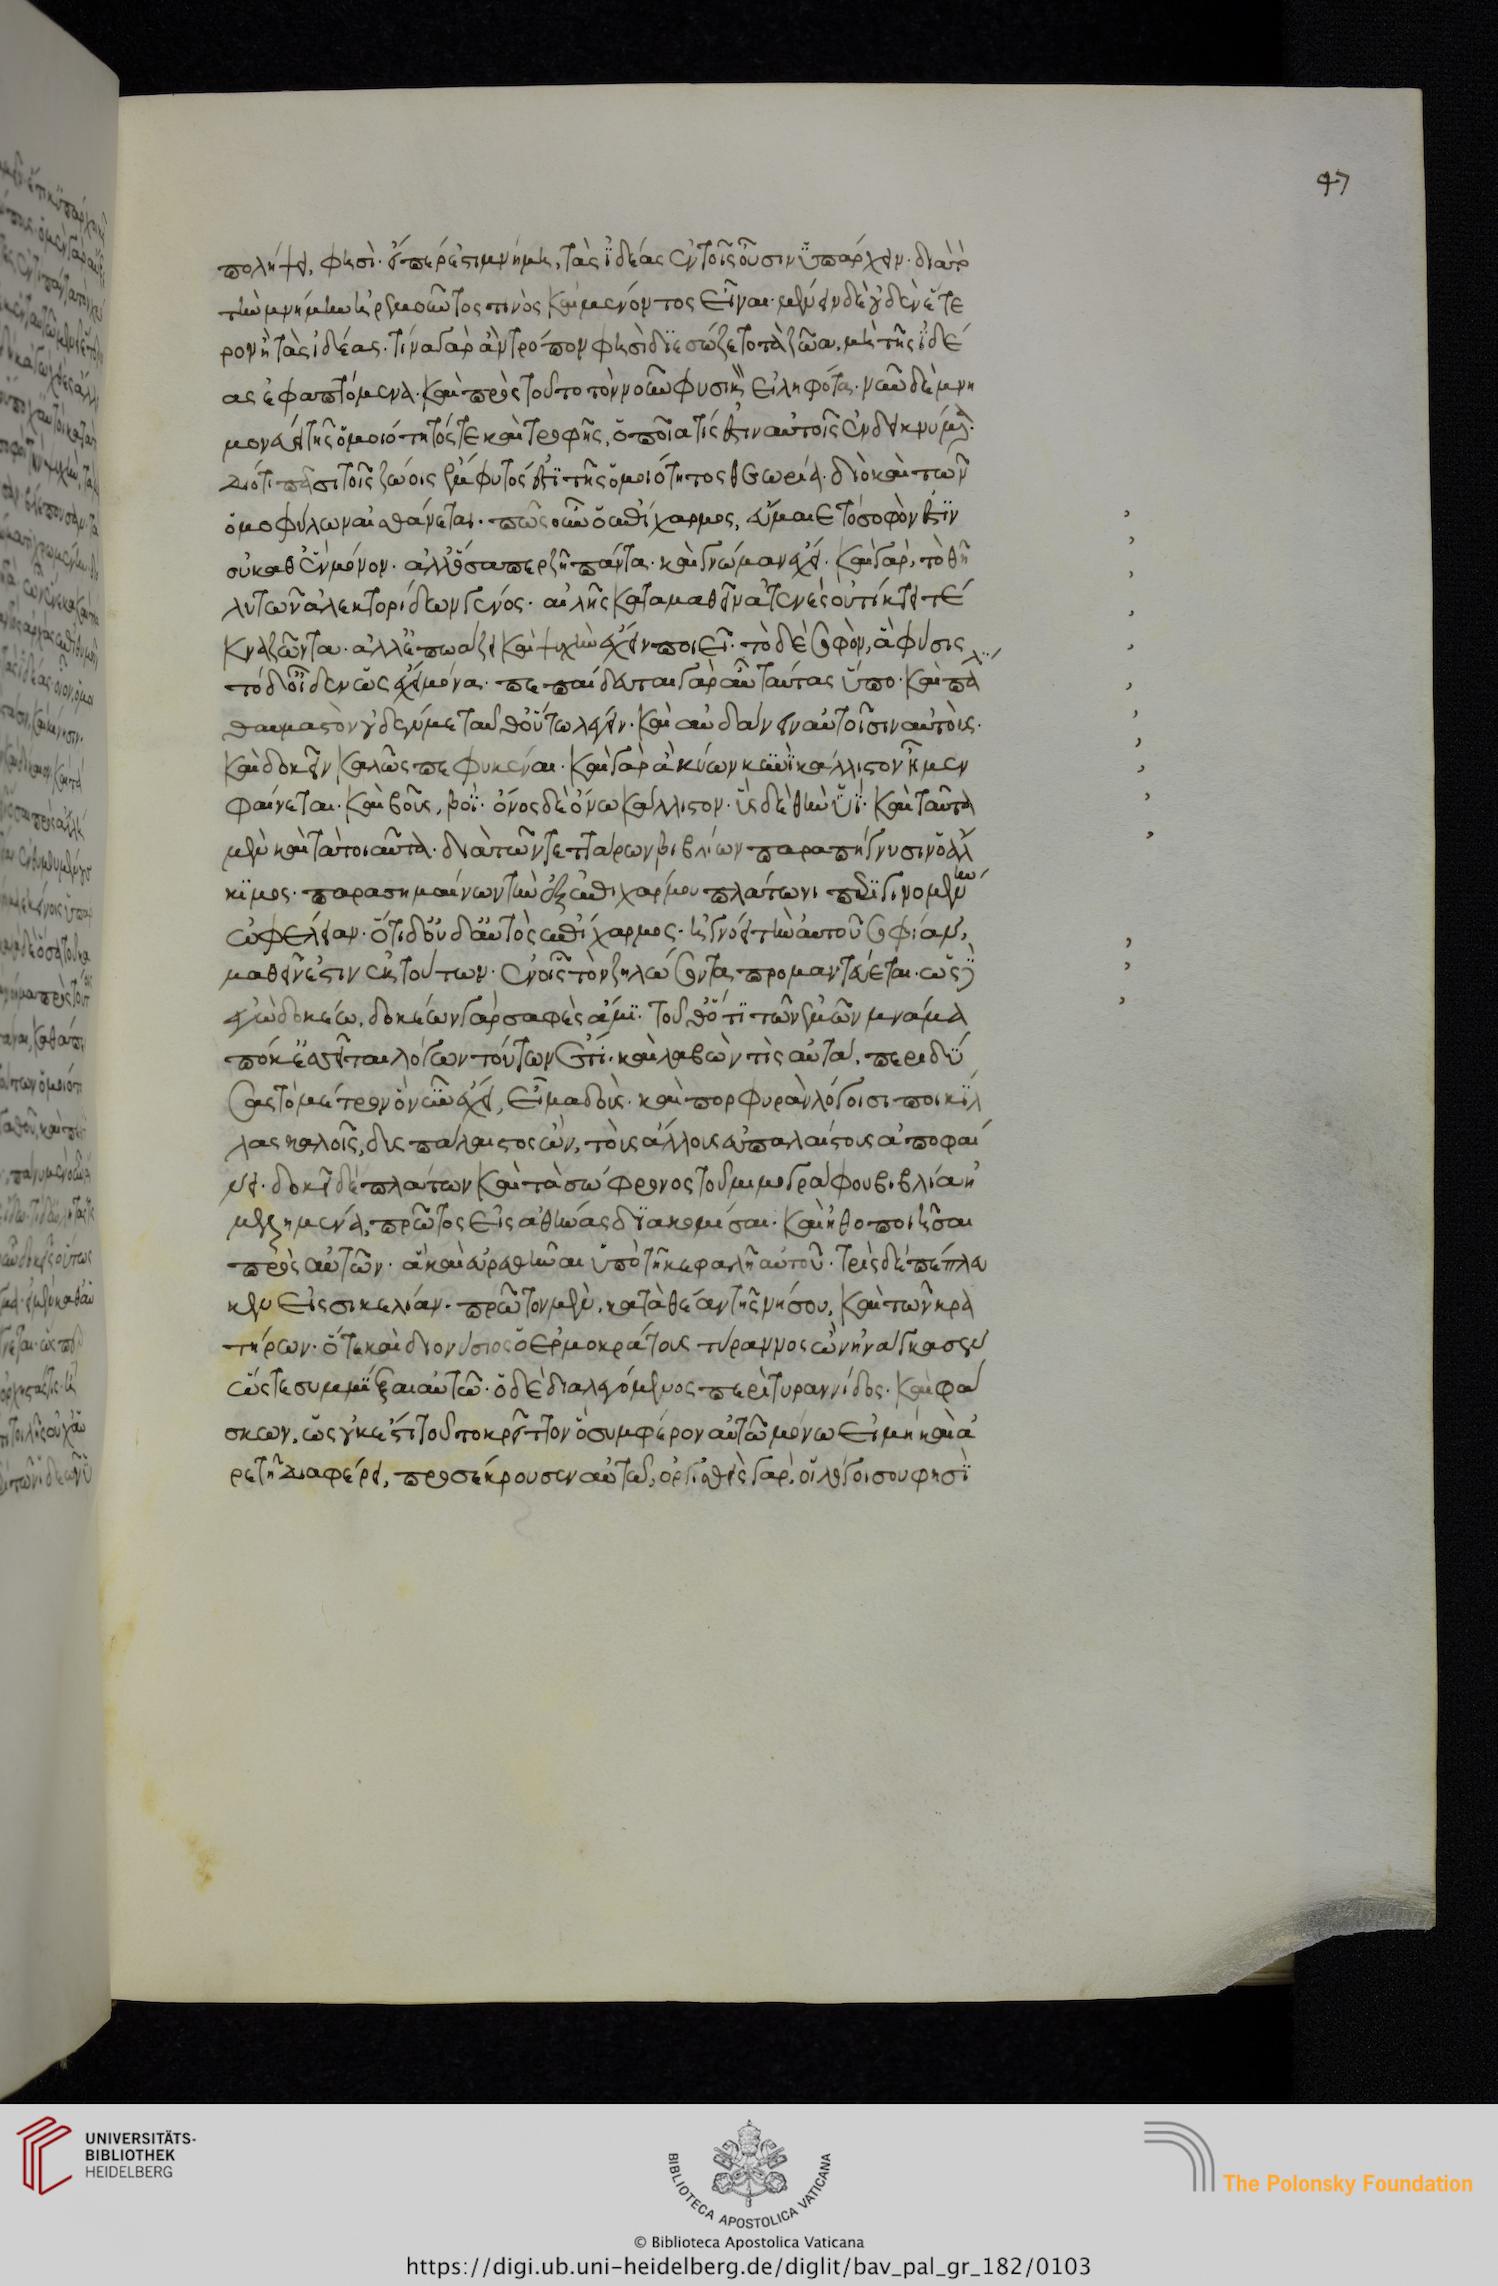 47
πολήψει, φησὶ· εἴπερ ἐστὶ μνήμη, τὰς ἰδέας ἐν τοῖς οὖσιν ὑπάρχειν· διὰ τὸ
τὴν μνήμην ἠρεμοῦντος τινὸς καὶ μένοντος εἶναι· μένειν δὲ οὐδὲν ἕτε
ρον ἢ τὰς ἰδέας. τίνα γὰρ ἂν τρόπον φησὶ διεσώζετο τὰ ζῶα, μὴ τῆς ἰδέ
ας ἐφαπτόμενα· καὶ πρὸς τοῦτο τὸν νοῦν φυσικῶς εἰληφότα· νῦν δὲ μνη
μονεύει τῆς ὁμοιότητός τε καὶ τροφῆς, ὁποία τίς ἐστιν αὐτοῖς ἐνδεικνύμενα·
διότι πᾶσι τοῖς ζώοις ἔμφυτός ἐστι τῆς ὁμοιότητος θεωρία· διὸ καὶ τῶν
ὁμοφύλων αἰσθάνεται· πῶς οὖν ὁ ἐπίχαρμος, εὔμαιε τὸ σοφὸν ἐστὶν
οὐ καθ' ἓν μόνον· ἀλλ' ὅσα περ ζῆ πάντα· καὶ γνώμαν ἔχει· καὶ γὰρ, τὸ θῆ
λυ τῶν ἀλεκτορίδων γένος· αἰ λῆς καταμαθεῖν ἀτενὲς οὐ τίκτει τέ
κνα ζῶντα· ἀλλ' ἐπωάζει καὶ ψυχὴν ἔχειν ποιεῖ· τὸ δὲ σοφὸν, ἁ φύσις
τόδ' οἶδεν ὡς ἔχει μόνα· πεπαίδευται γὰρ αὐταύτας ὕπο· καὶ πάλιν
θαυμαστὸν οὐδὲν με ταῦθ' οὕτω λέγειν· καὶ ἁνδάνειν αὐτοῖσιν αὐτοὺς·
καὶ δοκεῖν καλῶς πεφυκέναι· καὶ γὰρ ἁ κύων κυνὶ κάλλιστον εἶμεν
φαίνεται· καὶ βοῦς, βοΐ· ὄνος δὲ ὄνω κάλλιστον· ὗς δὲ θὴν ὑΐ· καὶ ταῦτα
μὲν καὶ τὰ τοιαῦτα· διὰ τῶν τεττάρων βιβλίων παραπήγνυσιν ὁ ἄλ
κιμος· παρασημαίνων τὴν ἐξ ἐπιχάρμου πλάτωνι περιγινομένην
ὠφέλειαν· ὅτι δ' οὐδ' αὐτὸς ἐπίχαρμος· ἠγνόει τὴν αὐτοῦ σοφίαν,
μαθεῖν ἔστιν ἐκ τούτων· ἐν οἷς τὸν ζηλώσοντα προμαντεύεται· ὡς δ'
ἐγὼ δοκέω, δοκέων γὰρ σαφὲς ἁμί· τοῦθ' ὅτι τῶν ἐμῶν μνάμα
πόκ' ἐσσεῖται λόγων τούτων ἔτι· καὶ λαβὼν τὶς αὐτά, περιδύ
σας τὸ μέτρον ὃ νῦν ἔχει, εἷμα δοὺς· καὶ πορφύραν λόγοισι ποικίλ
λας καλοῖς, δυσπάλαιστος ὢν, τοὺς ἄλλους εὐπαλαίστους ἀποφαί
νει· δοκεῖ δὲ πλάτων καὶ τὰ σώφρονος τοῦ μιμογράφου βιβλία ἠ
μελημένα, πρῶτος εἰς ἀθήνας διακομίσαι· καὶ ἠθοποιῆσαι
πρὸς αὐτῶν· ἃ καὶ εὑρεθῆναι ὑπὸ τῆ κεφαλῆ αὐτοῦ· τρὶς δὲ πέπλευ
κεν εἰς σικελίαν· πρῶτον μὲν, κατὰ θέαν τῆς νήσου, καὶ τῶν κρα
τήρων· ὅτε καὶ διονύσιος ὁ ἑρμοκράτους τύραννος ὢν ἠνάγκασεν
ὥστε συμμῖξαι αὐτῶ· ὁ δὲ διαλεγόμενος περὶ τυραννίδος· καὶ φά
σκων, ὡς οὐκ ἔστι τοῦτο κρεῖττον ὃ συμφέρον αὐτῶ μόνω εἰ μὴ καὶ ἀ
ρετῆ διαφέρει, προσέκρουσεν αὐτῶ, ὀργισθεὶς γὰρ, οἱ λόγοι σου φησὶ
UNIVERSITÄTS-
BIBLIOTHEK
HEIDELBERG
BIBLIOTECA APOSTOLICA VATICANA
The Polonsky Foundation
© Biblioteca Apostolica Vaticana
https://digi.ub.uni-heidelberg.de/diglit/bav_pal_gr_182/0103